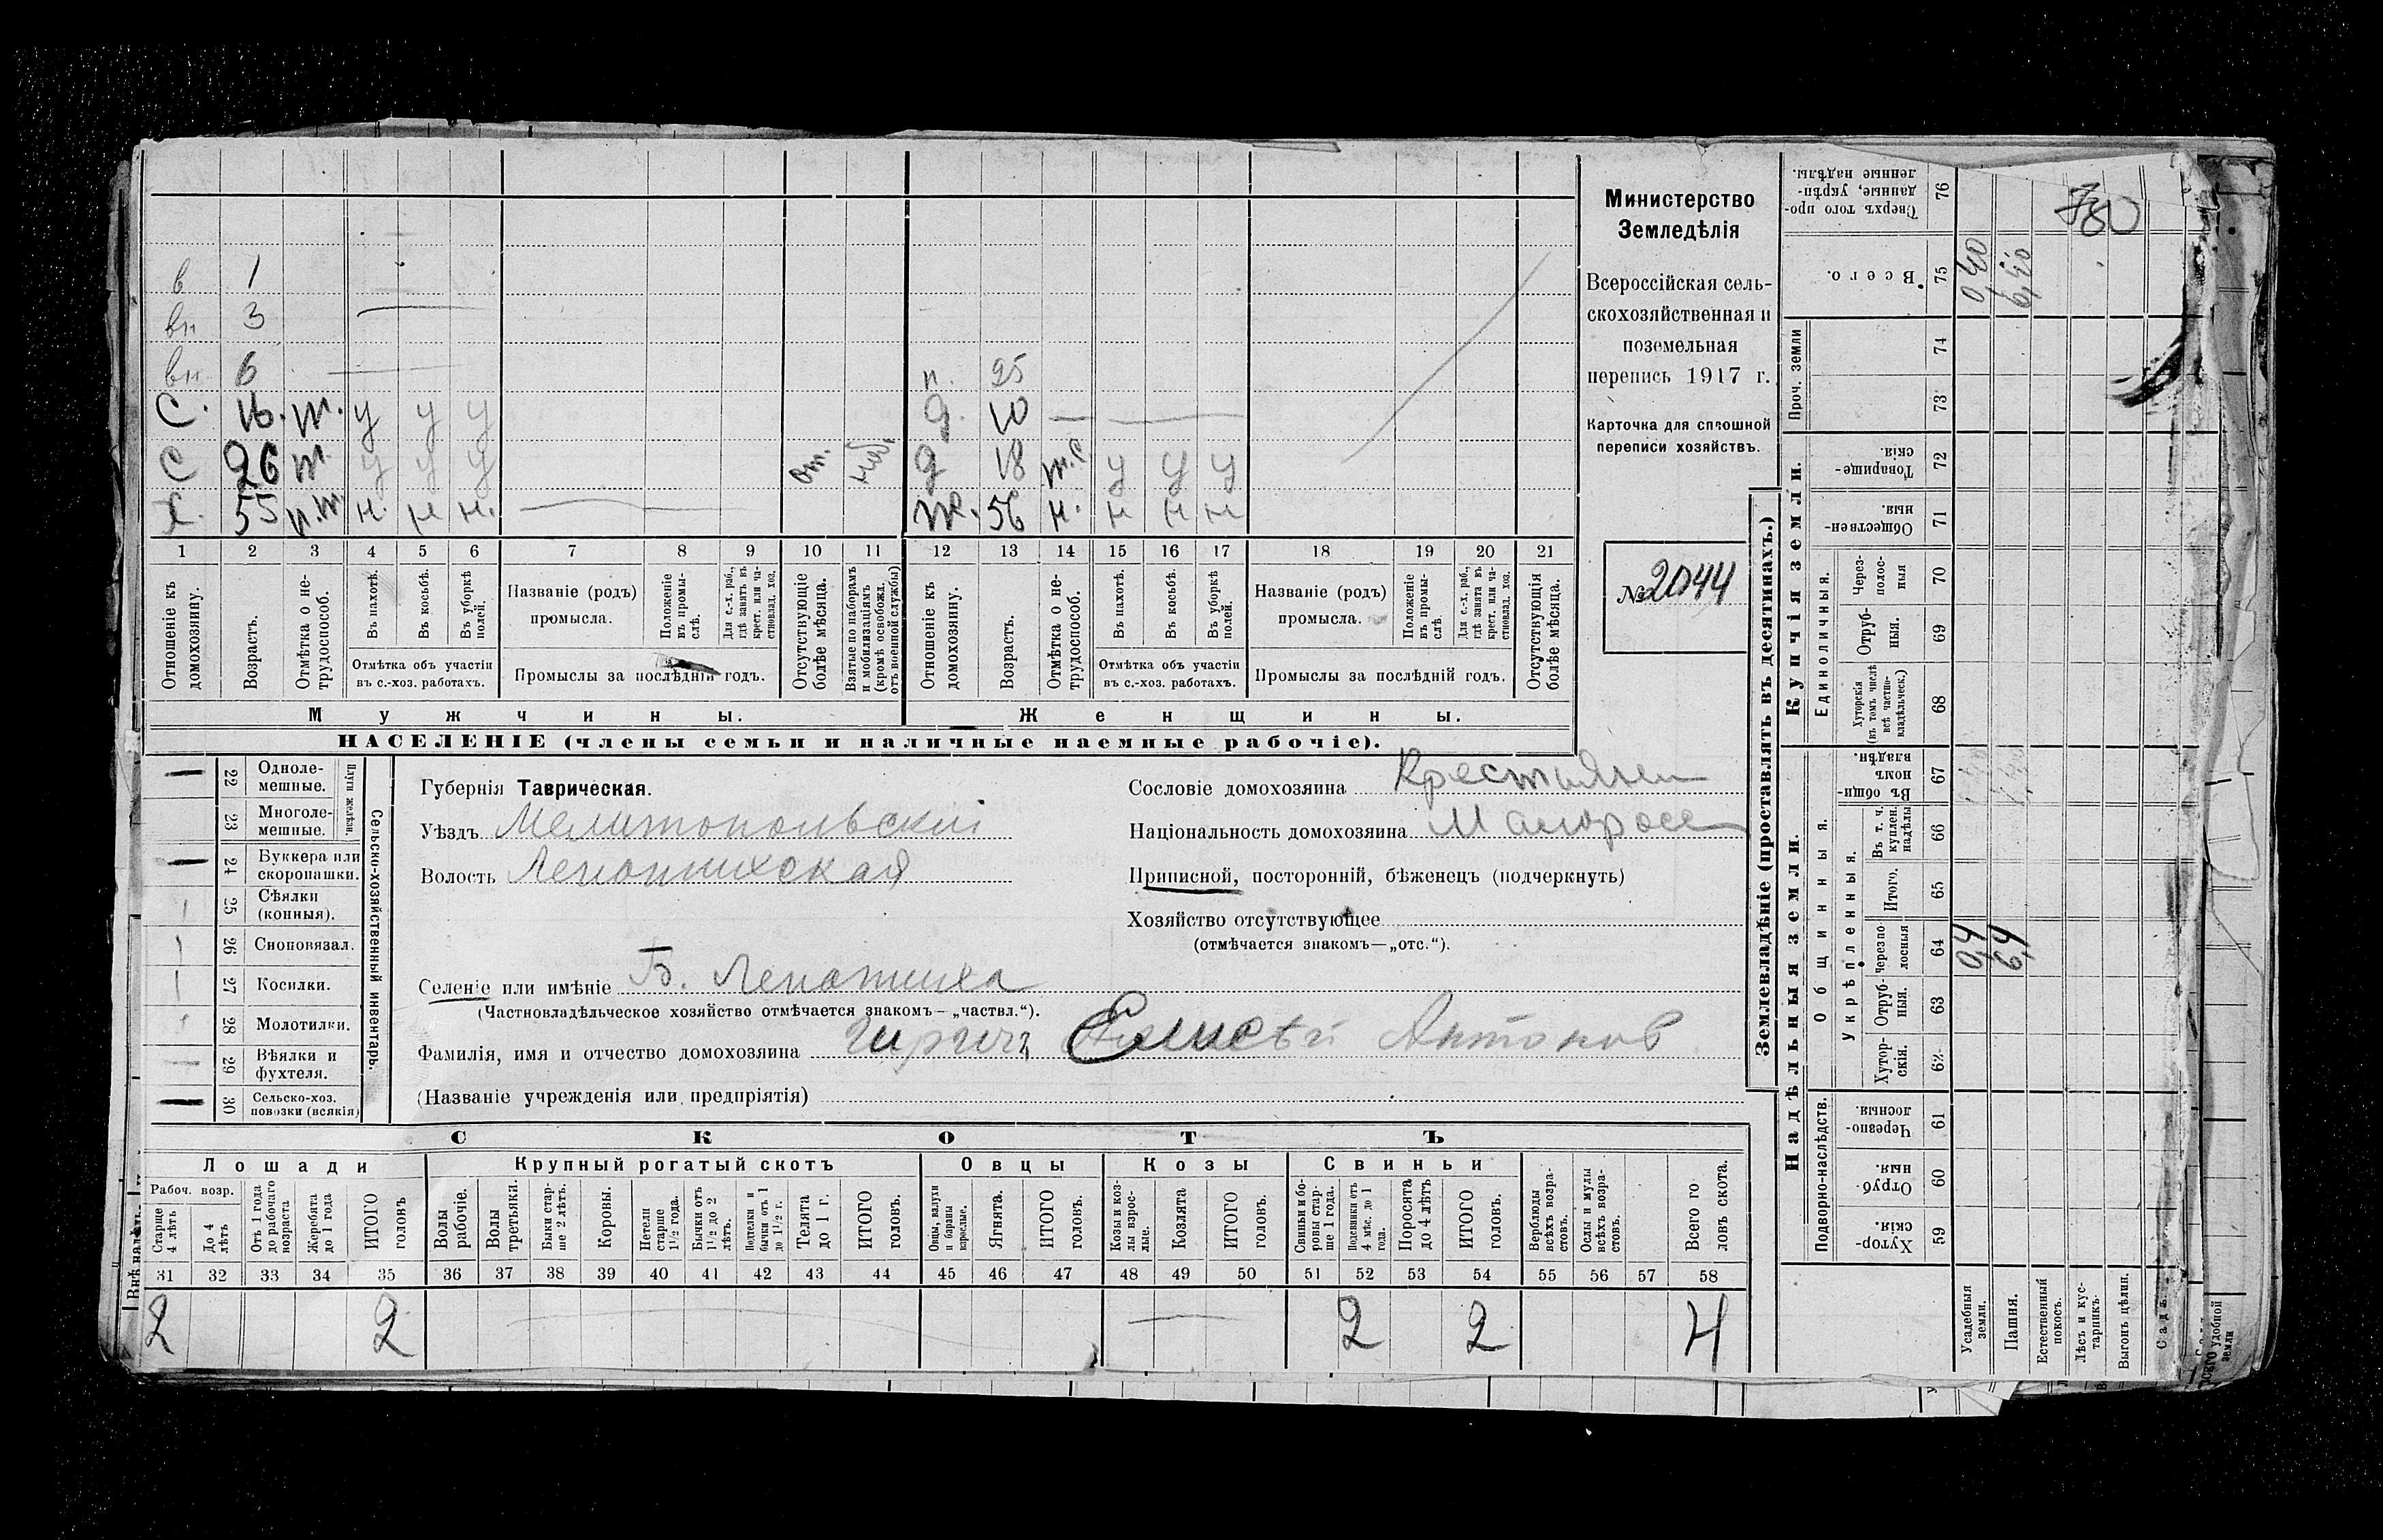 в 1
вн 3
вн 6 н. 25
С. 16. т. у у у д. 10
С 26 т. у у у от. наб. д 18 у у у
Х. 55 п.т н. н н. ж. 56 н. н н н
1 2 3 4 5 6 7 8 9 10 11 12 13 14 15 16 17 18 19 20 21
Отношеніе къ домохозяину.
Возрастъ.
Отмѣтка о нетрудоспособ.
Въ пахотѣ.
Въ косьбѣ.
Въ уборкѣ полей.
Отмѣтка объ участіи
въ с.-хоз. работахъ.
Названіе (родъ)
промысла.
Положеніе въ промыслѣ.
Для с.-х. раб., гдѣ занятъ въ крест. или частновлад. хоз.
Промыслы за послѣдній годъ.
Отсутствующіе болѣе мѣсяца.
Взятые по наборамъ и мобилизаціямъ (кромѣ освобожд. отъ военной службы)
Отношеніе къ домохозяину.
Возрастъ.
Отмѣтка о нетрудоспособ.
Въ пахотѣ.
Въ косьбѣ.
Въ уборкѣ полей.
Отмѣтка объ участіи
въ с.-хоз. работахъ.
Названіе (родъ)
промысла.
Положеніе въ промыслѣ.
Для с.-х. раб., гдѣ занята въ крест. или частновлад. хоз.
Промыслы за послѣдній годъ.
Отсутствующія болѣе мѣсяца.
Мужчины.
Женщины.
НАСЕЛЕНІЕ (члены семьи и наличные наемные рабочіе).
Министерство
Земледѣлія
Всероссійская сель-
скохозяйственная и
поземельная
перепись 1917 г.
Карточка для сплошной
переписи хозяйствъ.
№ 2044
22 Одноле-
мешные.
23 Многоле-
мешные.
Плуги желѣзн.
24 Буккера или
скоропашки.
25 Сѣялки
(конныя).
26 Сноповязал.
27 Косилки.
28 Молотилки.
29 Вѣялки и
фухтеля.
30 Сельско-хоз.
повозки (всякія)
Сельско-хозяйственный инвентарь.
Губернія Таврическая.
Уѣздъ Мелитопольскій
Волость Лепатихская
Селеніе или имѣніе Б. Лепатиха
(Частновладѣльческое хозяйство отмѣчается знакомъ — „частвл.“).
Фамилія, имя и отчество домохозяина Елисѣй Антонов
(Названіе учрежденія или предпріятія)
Сословіе домохозяина Крестьянен
Національность домохозяина Малоросс
Приписной, посторонній, бѣженецъ (подчеркнуть)
Хозяйство отсутствующее
(отмѣчается знакомъ—„отс.“).
СКОТЪ
Лошади
Рабоч. возр.
Старше 4 лѣтъ
До 4 лѣтъ
Отъ 1 года до рабочаго возраста
Жеребята до 1 года
ИТОГО головъ
Крупный рогатый скотъ
Волы рабочіе.
Волы третьяки.
Быки старше 2 лѣтъ.
Коровы.
Нетели старше 1½ года.
Бычки отъ 1½ до 2 лѣтъ.
Подтелки и бычки отъ 1 до 1½ г.
Телята до 1 г.
ИТОГО головъ.
Овцы
Овцы, валухи и бараны взрослые.
Ягнята.
ИТОГО головъ.
Козы
Козы и козлы взрослые.
Козлята
ИТОГО головъ.
Свиньи
Свиньи и боровы старше 1 года.
Подсвинки отъ 4 мѣс. до 1 года.
Поросята до 4 лѣтъ
ИТОГО головъ.
Верблюды всѣхъ возрастовъ.
Ослы и мулы всѣхъ возрастовъ.
Всего головъ скота.
31 32 33 34 35 36 37 38 39 40 41 42 43 44 45 46 47 48 49 50 51 52 53 54 55 56 57 58
2 2 2 2 4
Землевладѣніе (проставлять въ десятинахъ.)
Купчія земли.
Надѣльныя земли.
Проч. земли
Единоличныя.
Общинныя.
Укрѣпленныя.
Подворно-наслѣдств.
Сверхъ того проданные, укрѣпленные надѣлы. 76
Всего. 75 0,40 6,40
74
73
Товарищескія. 72
Общественныя. 71
Черезполосныя 70
Отрубныя. 69
Хуторскія (въ томъ числѣ всѣ частновладѣльческ.) 68
Въ общинномъ владѣн. 67
Въ т. ч. куплен. надѣлы 66
Итого. 65
Черезполосныя 64 0,4 6,4
Отрубныя. 63
Хуторскія. 62
Черезполосныя. 61
Отрубныя. 60
Хуторскія. 59
Усадебныя земли.
Пашня.
Естественный покосъ.
Лѣсъ и кустарникъ.
Выгонъ цѣлин.
Садъ.
удобной земли